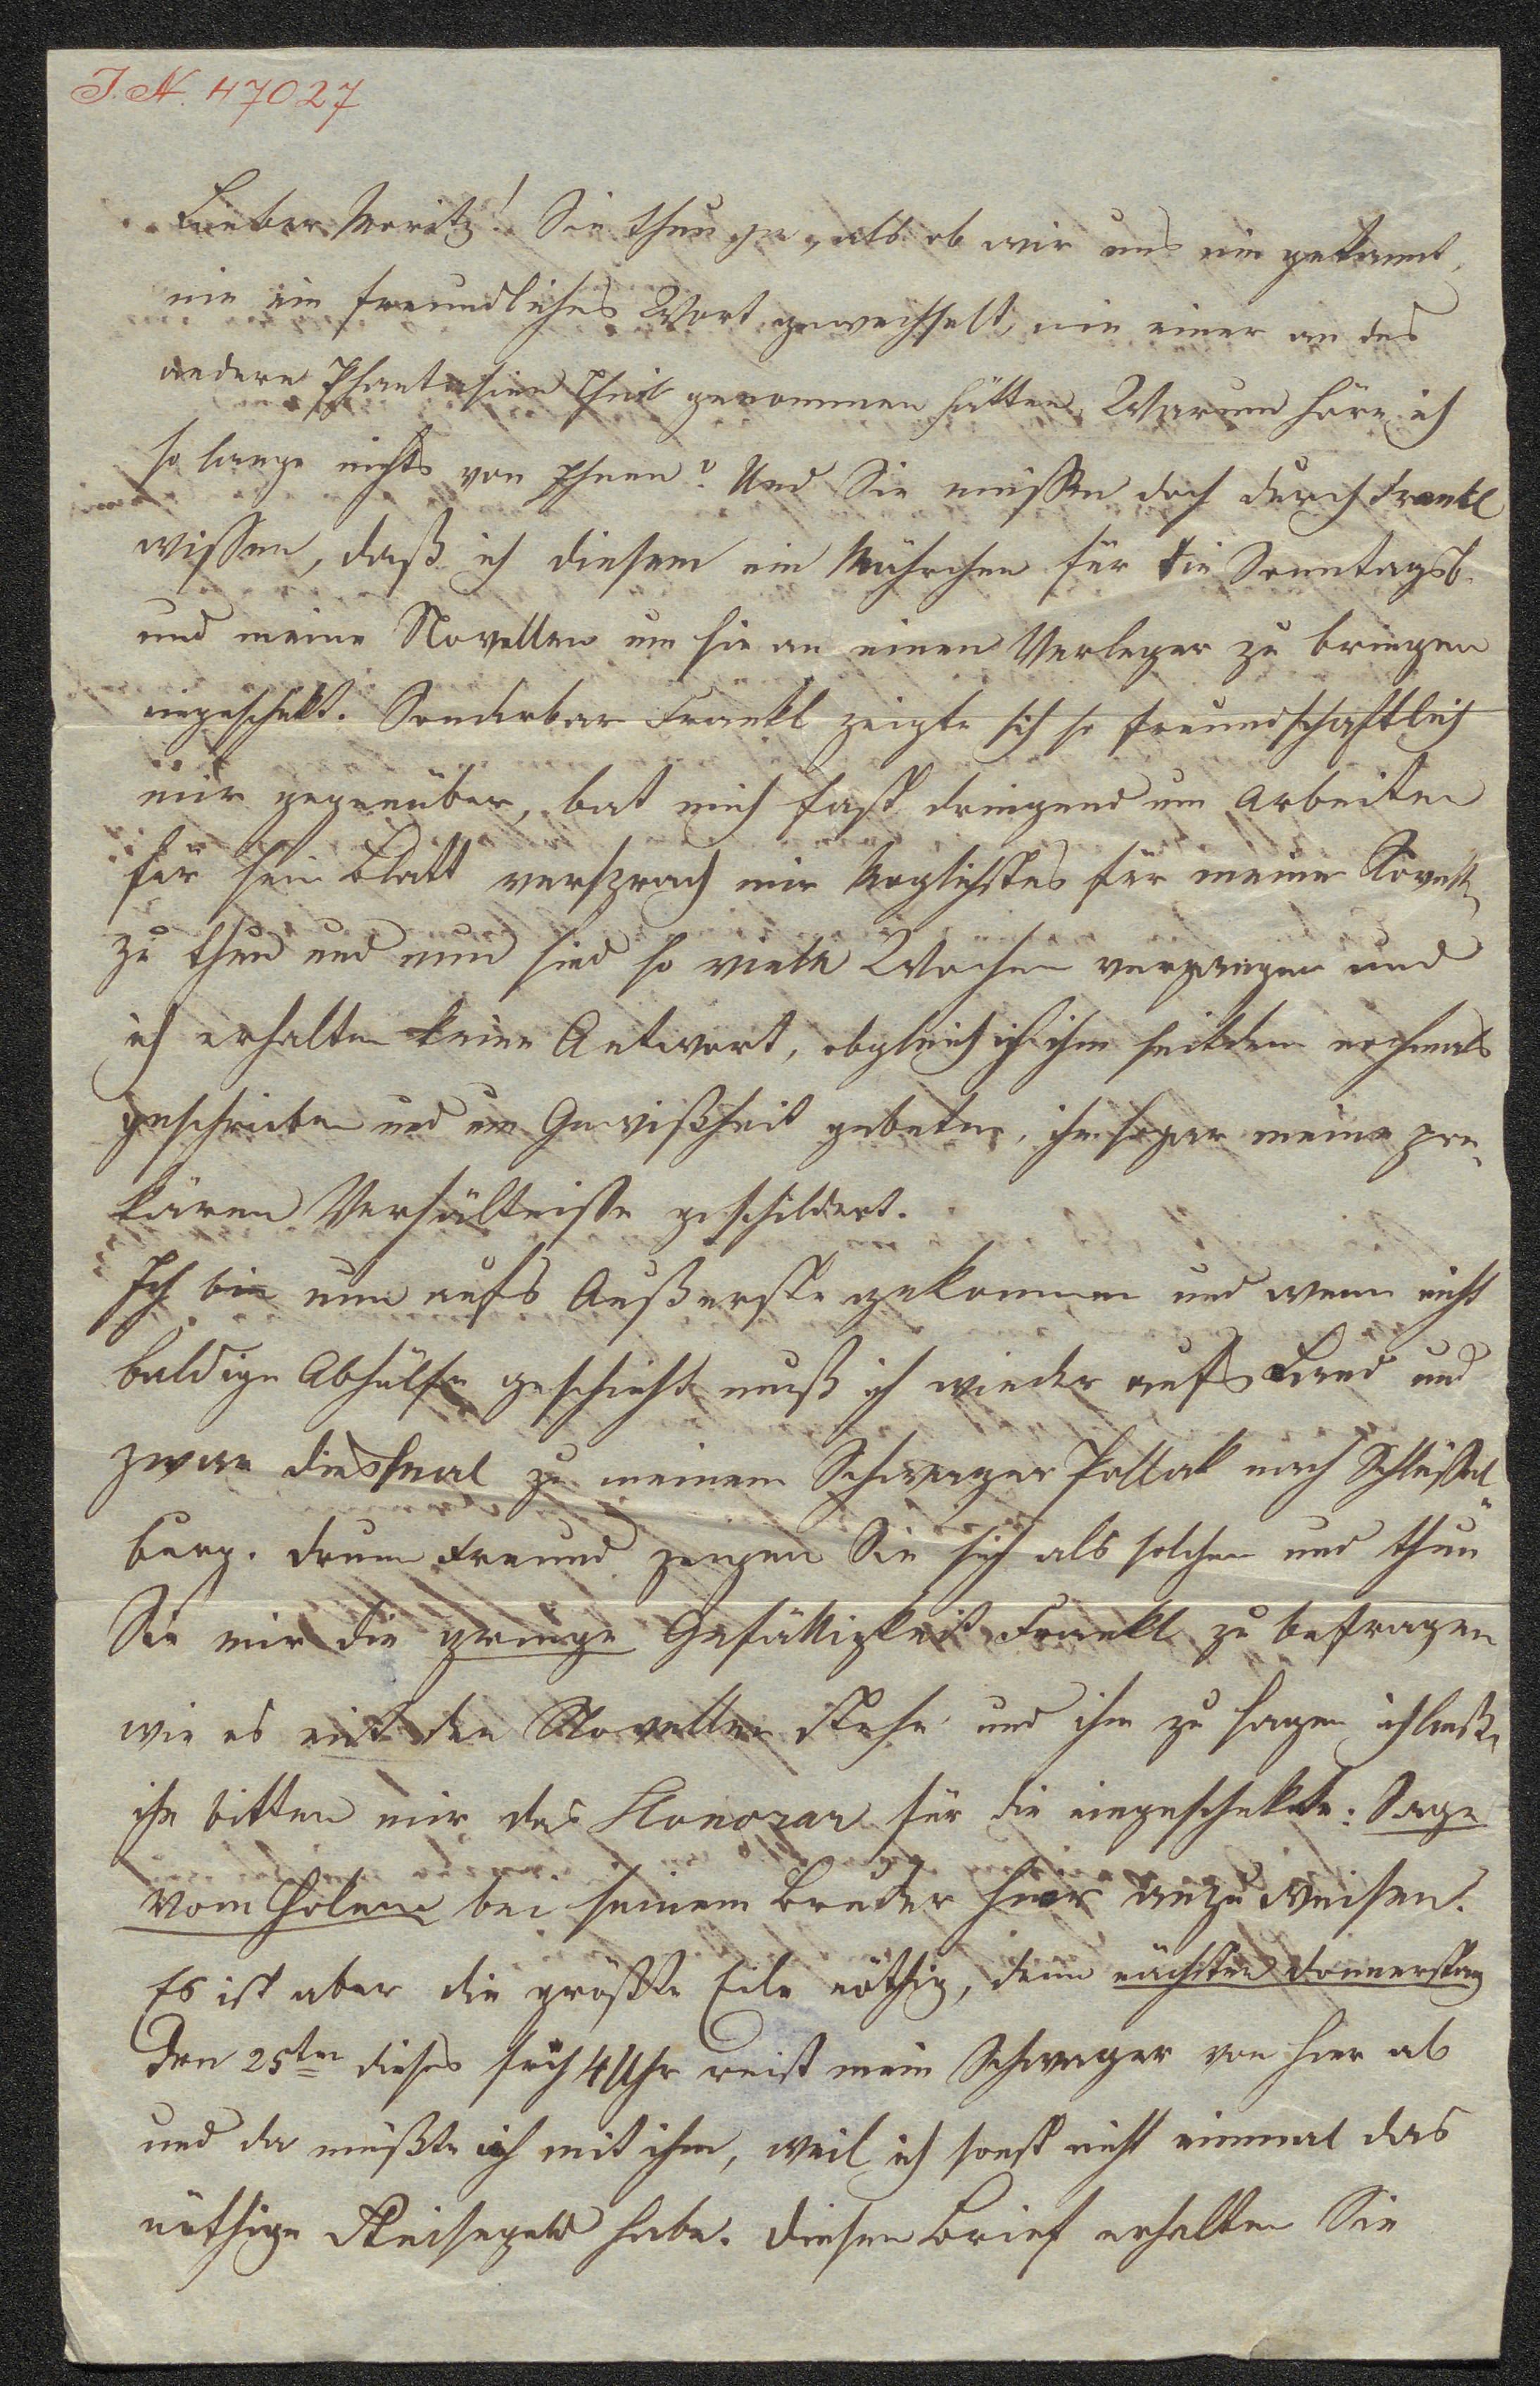 I. N. 47027
Lieber Moritz! Sie thun ja, als ob wir uns nie gekannt,
nie ein freundliches Wort gewechselt, nie einer an des
andern Phantasien Theil genommen hätten. Warum höre ich
so lange nichts von Ihnen? Und Sie müssen doch durch Frankl
wissen, daß ich diesem ein Mährchen für die Sonntagsb.
und meine Novellen um sie an einen Verleger zu bringen
eingeschikt. Sonderbar Frankl zeigte sich so freundschaftlich
mir gegenüber, bat mich fast dringend um Arbeiten
für sein Blatt versprach mir Möglichstes für meine Novell
zu thun und nun sind so viele Wochen vergangen und
ich erhalten keine Antwort, obgleich ich ihm seitdem nochmals
geschrieben und um Gewißheit gebeten, ihm sogar meine pre-
kären Verhältnisse geschildert.
Ich bin nun aufs Äußerste gekommen und wenn nicht
baldige Abhülfe geschieht muß ich wieder aufs Land und
zwar diesmal zu meinem Schwager Pollak nach Schlüssel
burg. Drum Freund zeigen Sie sich als solchen und thun
Sie mir die geringe Gefälligkeit Frankl zu befragen
wie es mit den Novellen stehe und ihm zu sagen ich ließe
ihn bitten mir das Honorar für die eingeschikte: Sage
vom Golem bei seinem Bruder hier anzuweisen.
Es ist aber die größte Eile nöthig, denn nächsten Donnerstag
den 25ten dieses früh 4 Uhr reist mein Schwager von hier ab
und da müßte ich mit ihm, weil ich sonst nicht einmal das
nöthige Reisegeld habe. Diesen Brief erhalten Sie